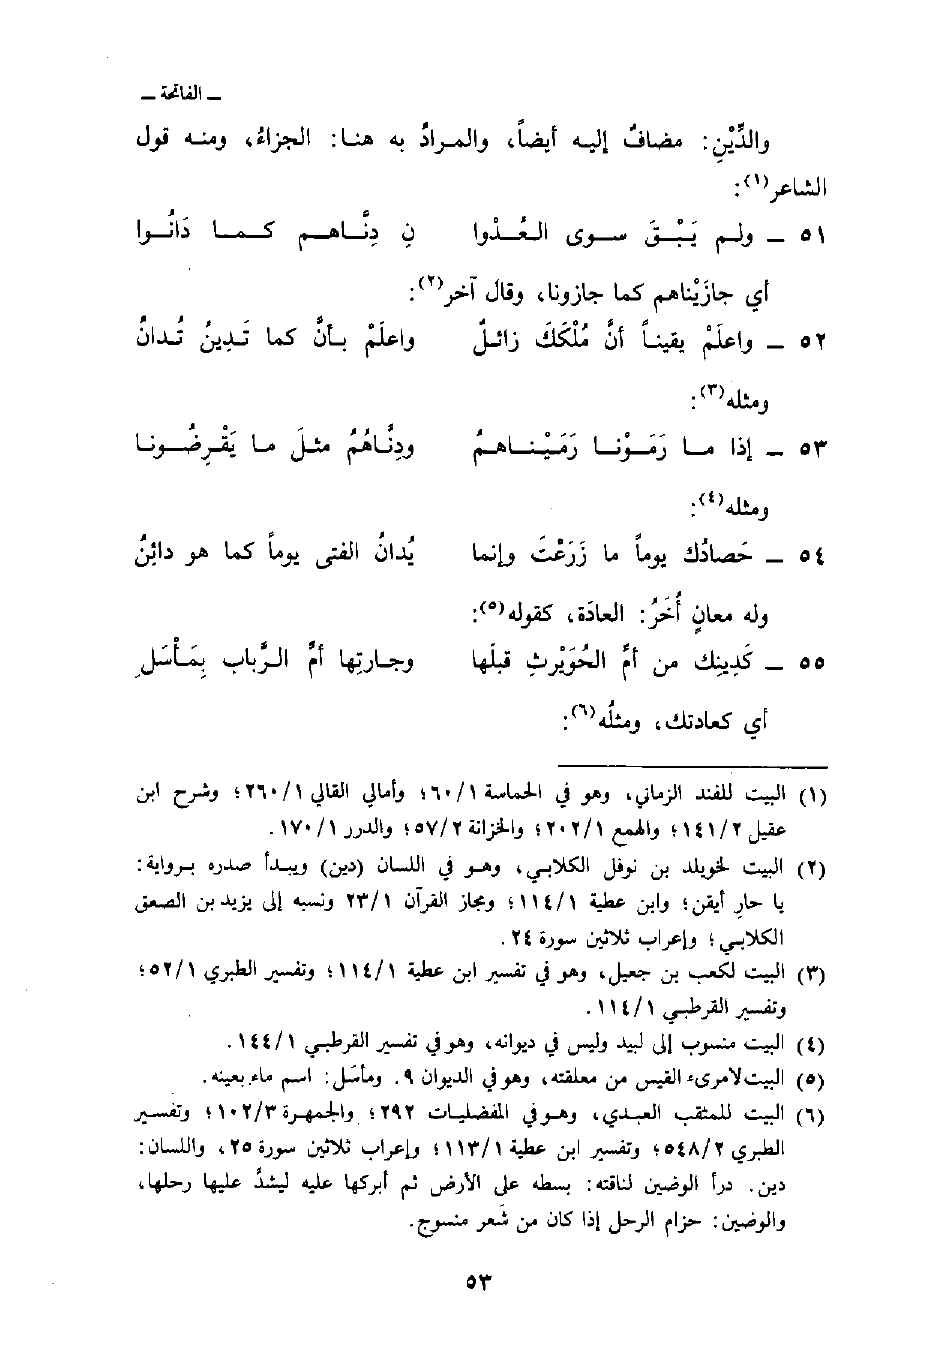 ـ الفاتحة ـ
والدِّيْنِ: مضافٌ إليه أيضاً، والمرادُ به هنا: الجزاءُ، ومنه قول
الشاعر(١):
٥١ ـ ولم يَبْقَ سوى العُدْوا نِ دِنَّاهم كما دَانُوا
أي جازَيْناهم كما جازونا، وقال آخر(٢):
٥٢ ـ واعلَمْ يقيناً أنَّ مُلْكَكَ زائلٌ واعلَمْ بأنَّ كما تَدينُ تُدانُ
ومثله(٣):
٥٣ ـ إذا ما رَمَوْنا رَمَيْناهمُ ودِنَّاهُمُ مثلَ ما يَقْرِضُونا
ومثله(٤):
٥٤ ـ حَصادُك يوماً ما زَرَعْتَ وإنما يُدانُ الفتى يوماً كما هو دائِنُ
وله معانٍ أُخَرُ: العادَة، كقوله(٥):
٥٥ ـ كَدِينِك من أمِّ الحُوَيْرثِ قبلَها وجارتِها أمِّ الرَّباب بِمَأْسَلِ
أي كعادتك، ومثلُه(٦):
(١) البيت للفند الزماني، وهو في الحماسة ٦٠/١؛ وأمالي القالي ٢٦٠/١؛ وشرح ابن
عقيل ١٤١/٢؛ والهمع ٢٠٢/١؛ والخزانة ٥٧/٢؛ والدرر ١٧٠/١.
(٢) البيت لخويلد بن نوفل الكلابي، وهو في اللسان (دين) ويبدأ صدره برواية:
يا حارِ أيقن؛ وابن عطية ١١٤/١؛ ومجاز القرآن ٢٣/١ ونسبه إلى يزيد بن الصعق
الكلابي؛ وإعراب ثلاثين سورة ٢٤.
(٣) البيت لكعب بن جعيل، وهو في تفسير ابن عطية ١١٤/١؛ وتفسير الطبري ٥٢/١؛
وتفسير القرطبي ١١٤/١.
(٤) البيت منسوب إلى لبيد وليس في ديوانه، وهو في تفسير القرطبي ١٤٤/١.
(٥) البيت لامرىء القيس من معلقته، وهو في الديوان ٩. ومأسَل: اسم ماء بعينه.
(٦) البيت للمثقب العبدي، وهو في المفضليات ٢٩٢؛ والجمهرة ١٠٢/٣؛ وتفسير
الطبري ٥٤٨/٢؛ وتفسير ابن عطية ١١٣/١؛ وإعراب ثلاثين سورة ٢٥، واللسان:
دين. درأ الوضين لناقته: بسطه على الأرض ثم أبركها عليه ليشدَّ عليها رحلها،
والوضين: حزام الرحل إذا كان من شَعر منسوج.
٥٣